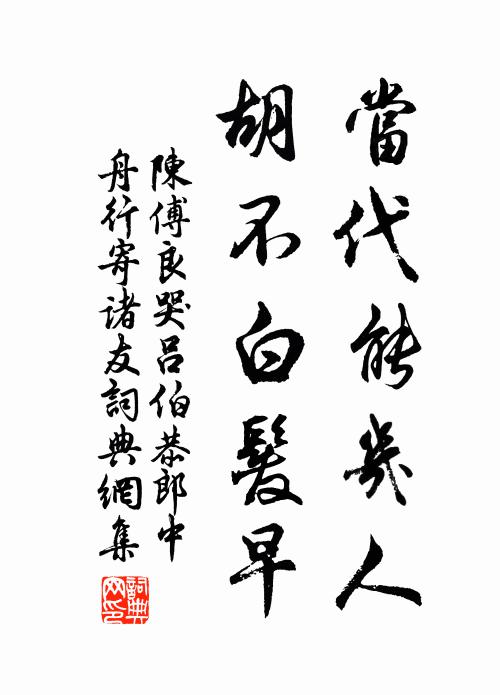 當代能幾人
胡不白髮早
陳傅良哭呂伯恭郎中
舟行寄諸友詞典網集
詞典
网印